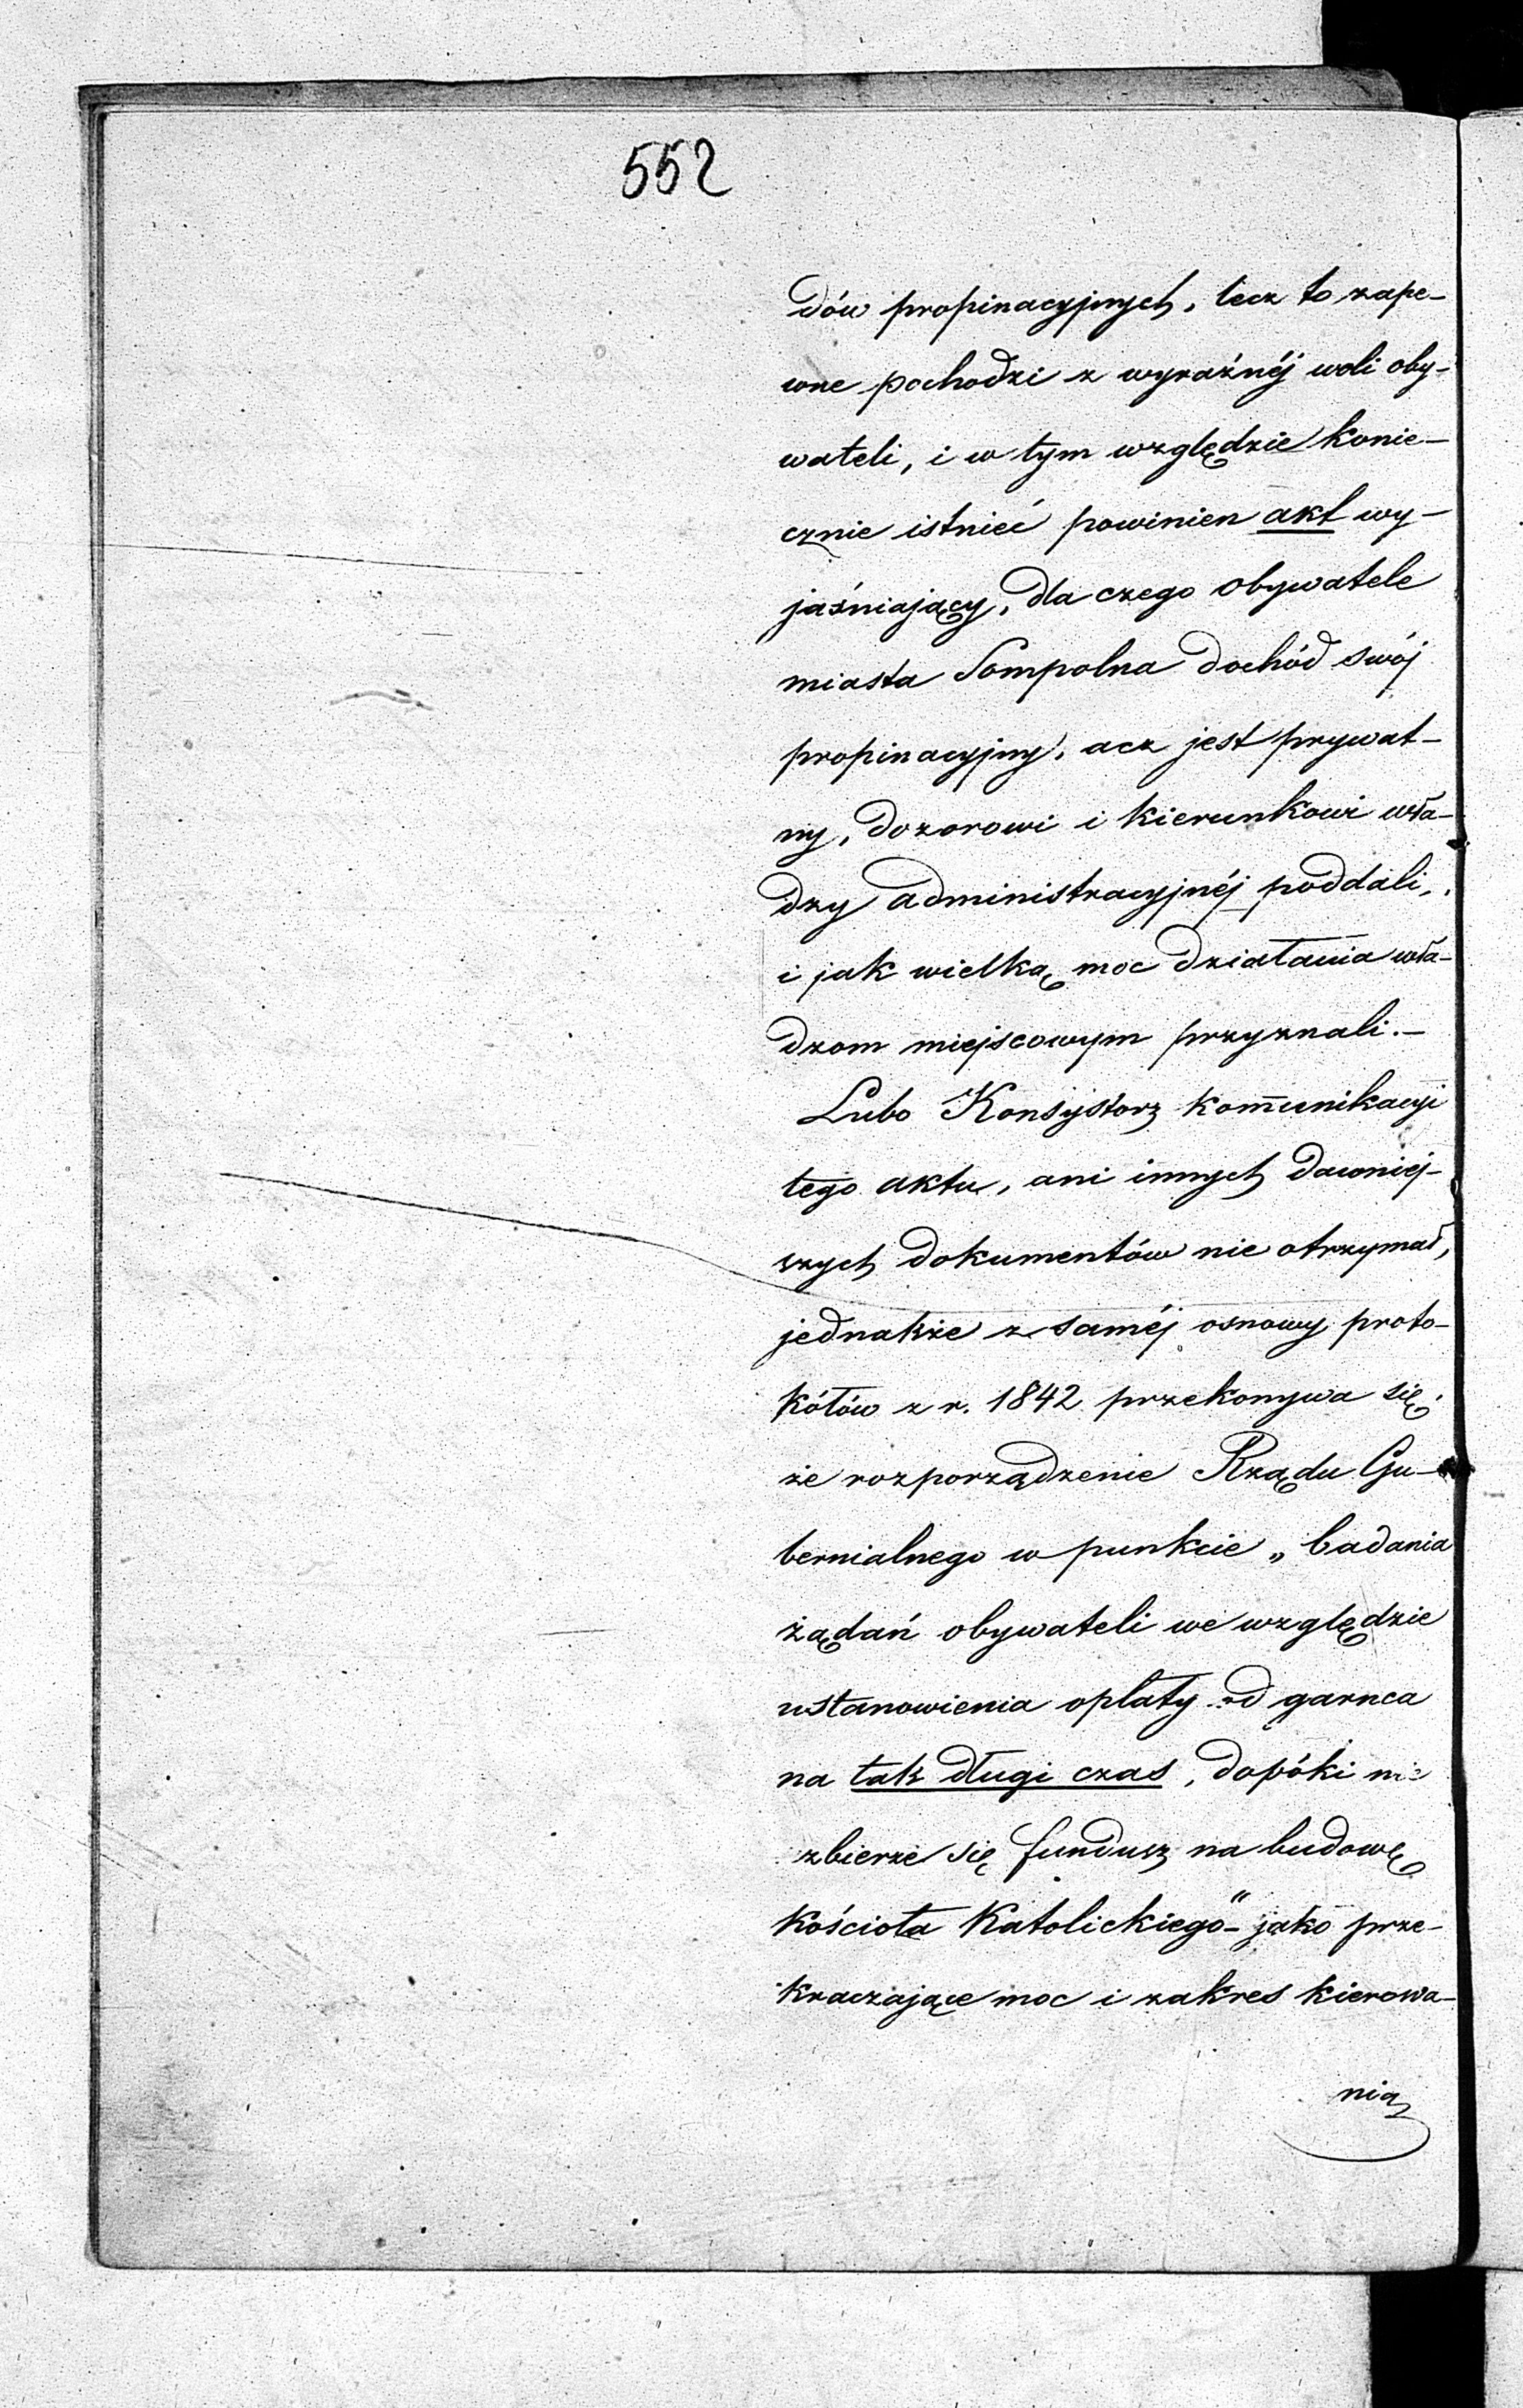 552
dów propinacyjnych, lecz to zape-
wne pochodzi z wyraźnéj woli oby-
wateli, i w tym względzie konie-
cznie istnieć powinien akt wy-
jaśniający, dla czego obywatele
miasta Sompolna dochód swój
propinacyjny, acz jest prywat-
ny, dozorowi i kierunkowi wła-
dzy administracyjnéj poddali,
i jak wielką moc działania wła-
dzom miejscowym przyznali.-
Lubo Konsystorz kom̄unikacyi
tego aktu, ani innych dawniej-
szych dokumentów nie otrzymał,
jednakże z saméj osnowy proto-
kółów z r. 1842 przekonywa się,
że rozporządzenie Rządu Gu-
bernialnego w punkcie „badania
żądań obywateli we względzie
ustanowienia opłaty od garnca
na tak długi czas, dopóki nie
zbierze się fundusz na budowę
kościoła Katolickiego" - jako prze-
kraczające moc i zakres kierowa-
nia